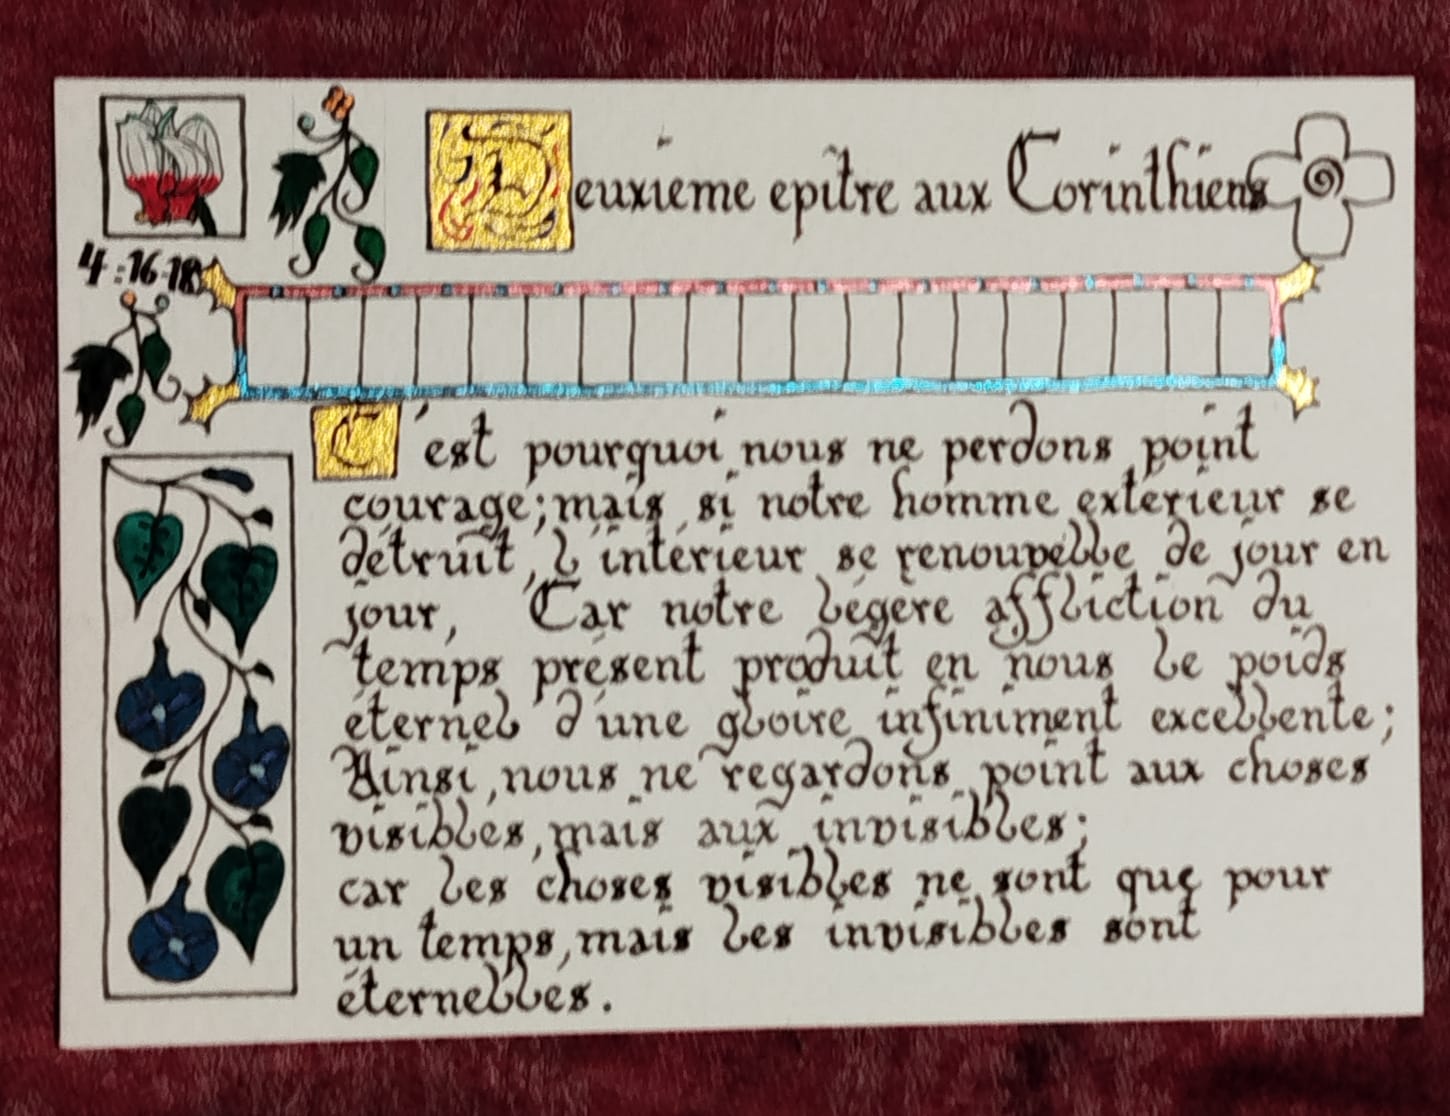 Deuxieme epître aux Corinthiens
4:16-18
C'est pourquoi nous ne perdons point
courage; mais si notre homme extérieur se
détruit, l'intérieur se renouvelle de jour en
jour, Car notre légère affliction du
temps présent produit en nous le poids
éternel d'une gloire infiniment excellente;
Ainsi, nous ne regardons point aux choses
visibles, mais aux invisibles;
car les choses visibles ne sont que pour
un temps, mais les invisibles sont
éternelles.